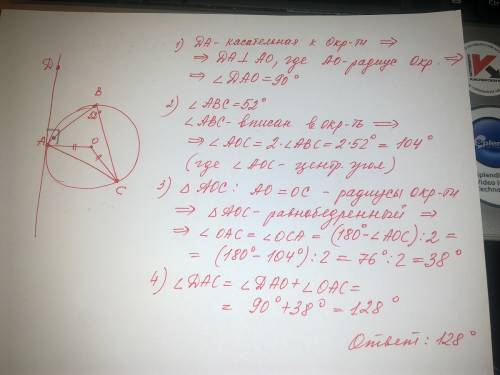 1) DA - касательная к окр-ти ⇒
⇒ DA⊥AO, где AO - радиус окр. ⇒
⇒ ∠DAO = 90°
2) ∠ABC = 52°
∠ABC - вписан в окр-ть ⇒
⇒ ∠AOC = 2·∠ABC = 2·52° = 104°
(где ∠AOC - центр. угол)
3) △AOC: AO = OC - радиусы окр-ти
⇒ △AOC - равнобедренный ⇒
⇒ ∠OAC = ∠OCA = (180° - ∠AOC) : 2 =
= (180° - 104°) : 2 = 76° : 2 = 38°
4) ∠DAC = ∠DAO + ∠OAC =
= 90° + 38° = 128°
Ответ: 128°
D
B
52°
A
O
C